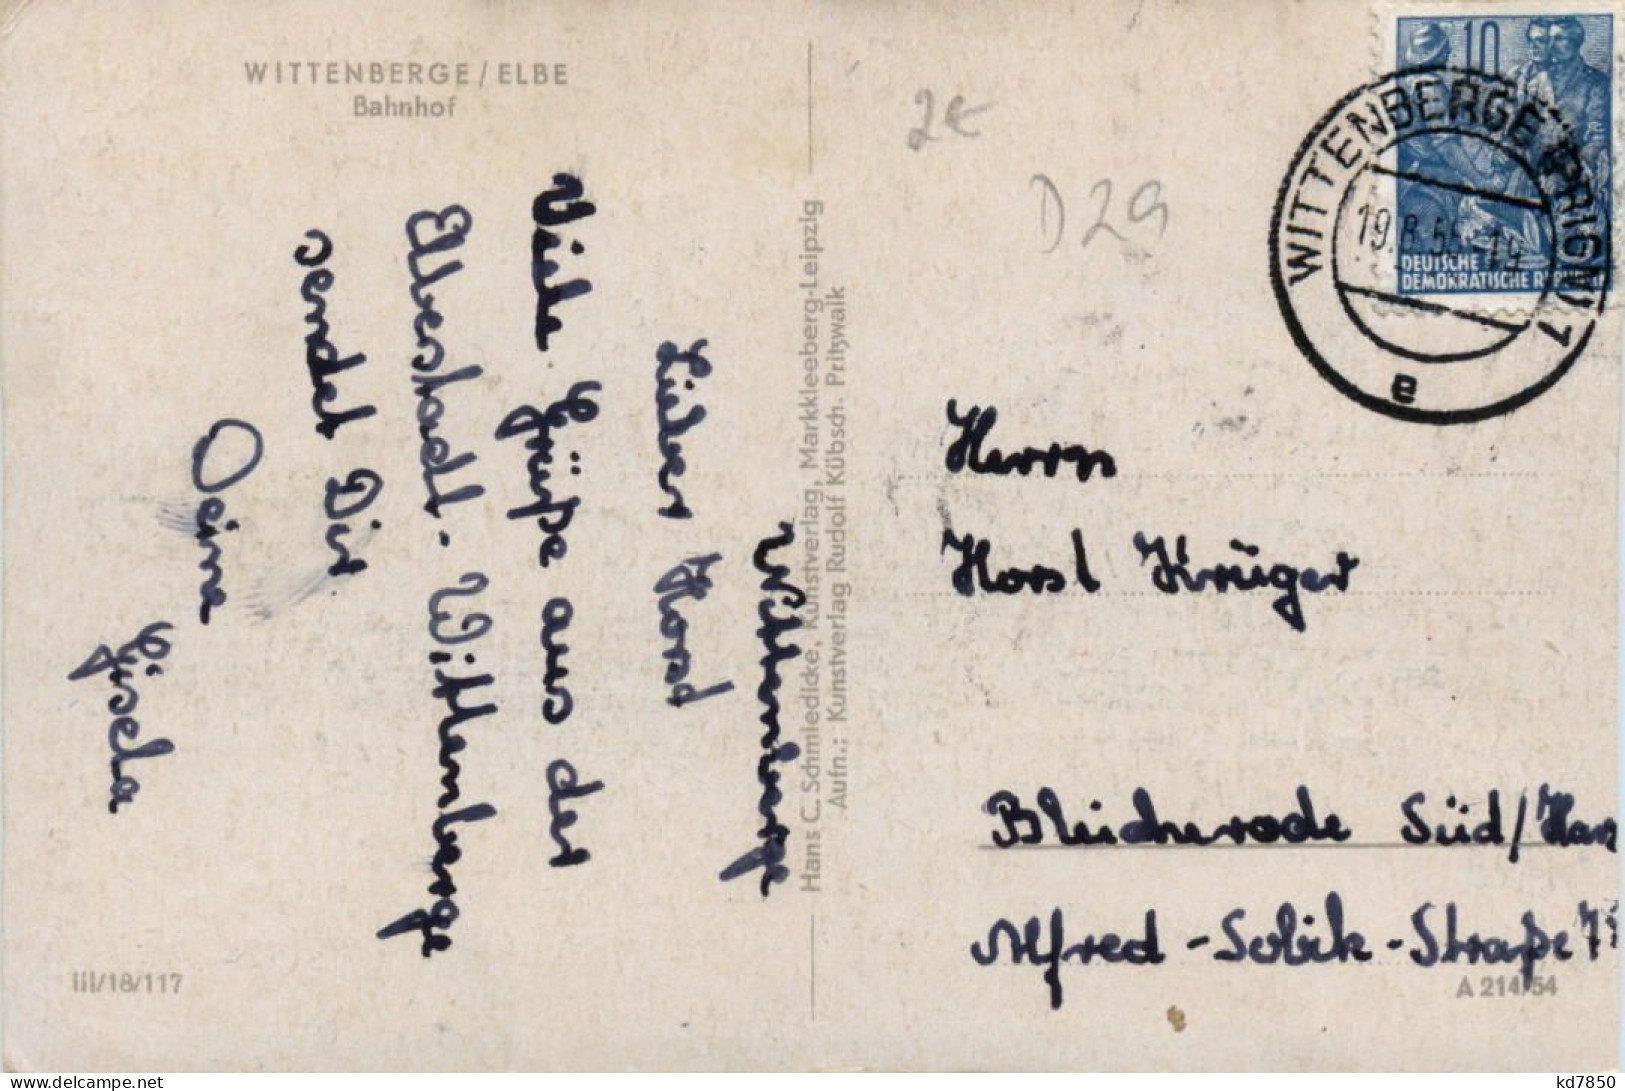 WITTENBERGE/ELBE
Bahnhof
Wittenberge
Lieber Horst
Viele Grüße aus der
Elbestadt - Wittenberge
sendet Dir
Deine
Gisela
III/18/117
Hans C. Schmiedicke, Kunstverlag, Markkleeberg-Leipzig
Aufn.: Kunstverlag Rudolf Kübsch. Pritzwalk
2€
D29
10
DEUTSCHE
DEMOKRATISCHE
WITTENBERGE (PRIGN) 1
19.8.55-19
e
Herrn
Horst Krüger
Bleicherode Süd/Harz
Alfred-Sobik-Straße
A 214/54
kd7850